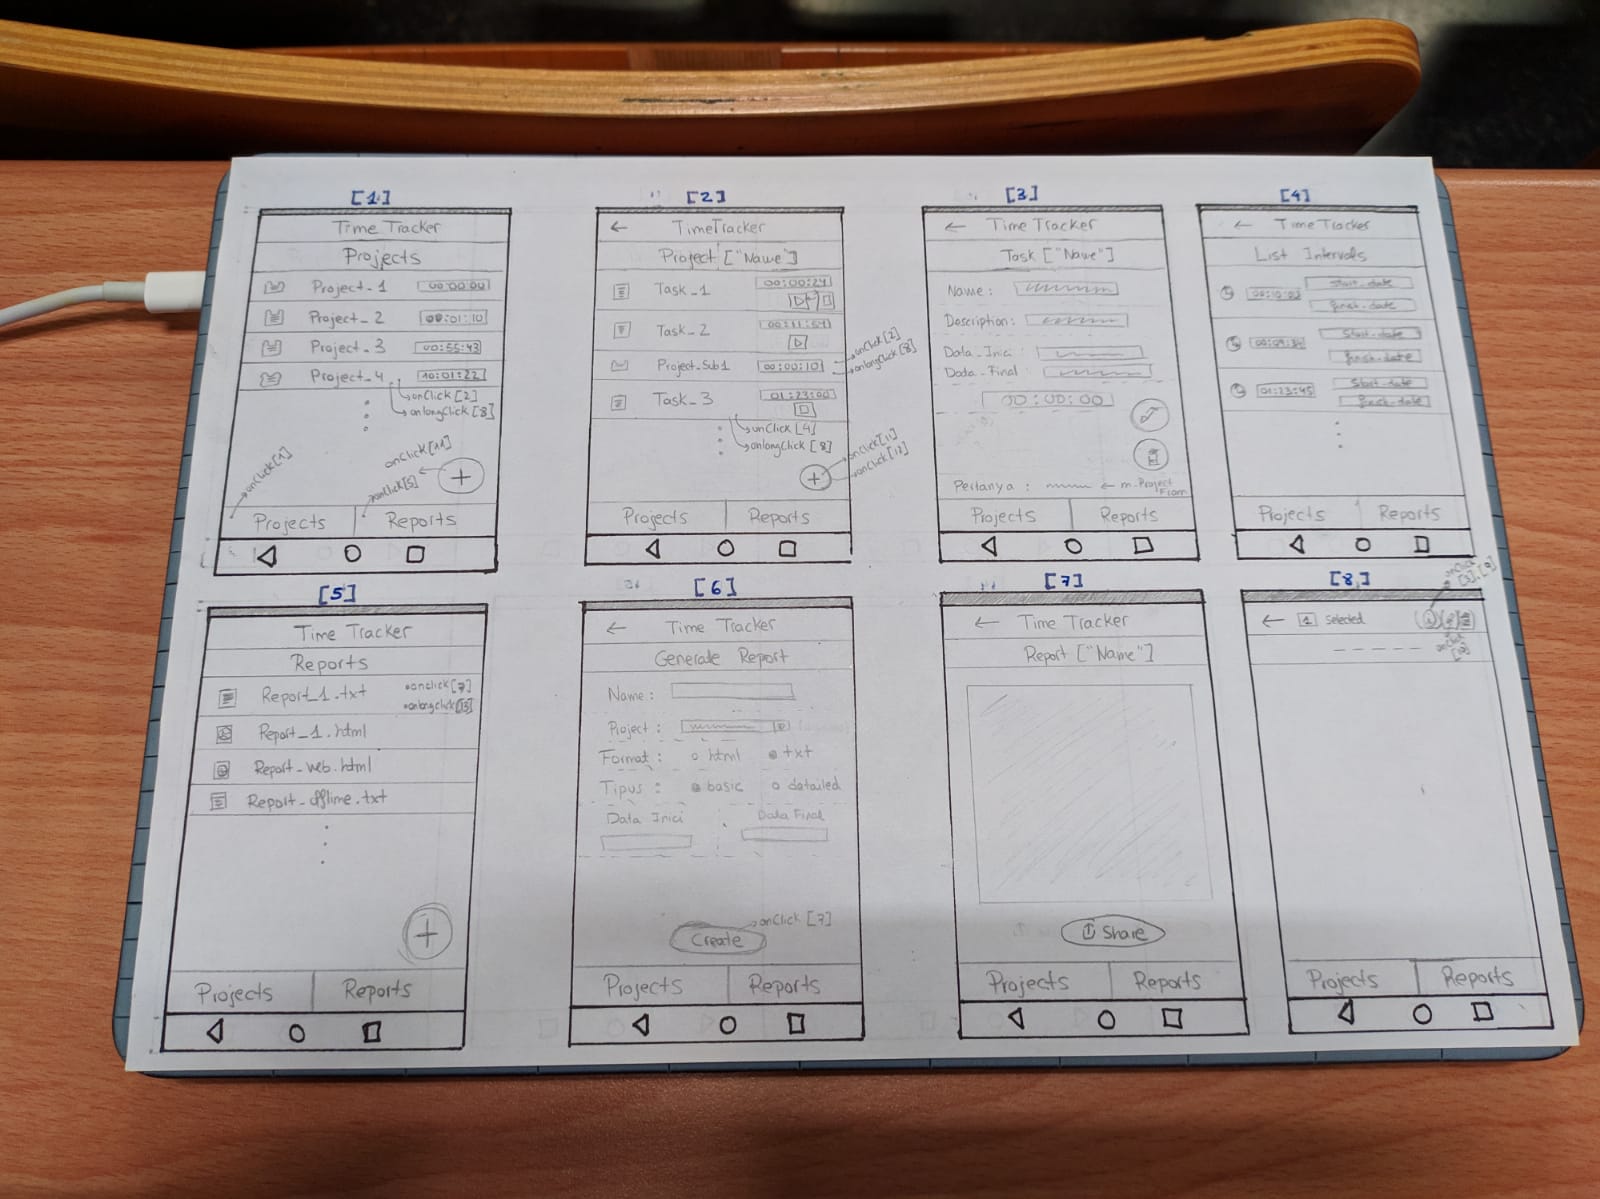 [1]
Time Tracker
Projects
Project_1 00:00:00
Project_2 00:01:10
Project_3 00:55:43
Project_4 10:01:22
onClick[2]
onlongClick[8]
onClick[1]
onClick[11]
onClick[5]
+
Projects Reports
[2]
← TimeTracker
Project ["Name"]
Task_1 00:00:24
Task_2 00:11:54
Project_Sub1 00:00:10
onClick[2]
onlongClick[8]
Task_3 01:23:00
onClick [4]
onlongClick [8]
onClick[11]
onClick[12]
+
Projects Reports
[3]
← Time Tracker
Task ["Name"]
Name:
Description:
Data_Inici:
Data_Final:
00:00:00
Pertanya : ← m.Project From
Projects Reports
[4]
← Time Tracker
List Intervals
Start_date
finish_date
Start_date
finish_date
01:23:45 Start_date
finish_date
Projects Reports
[5]
Time Tracker
Reports
Report_1.txt
onclick[7]
onlongclick[13]
Report_1.html
Report_web.html
Report_offline.txt
+
Projects Reports
[6]
← Time Tracker
Generate Report
Name:
Project:
Format: html txt
Tipus: basic datailed
Data Inici Data Final
onClick [7]
Create
Projects Reports
[7]
← Time Tracker
Report ["Name"]
Share
Projects Reports
[8]
← 1 Selected
onClick
Projects Reports